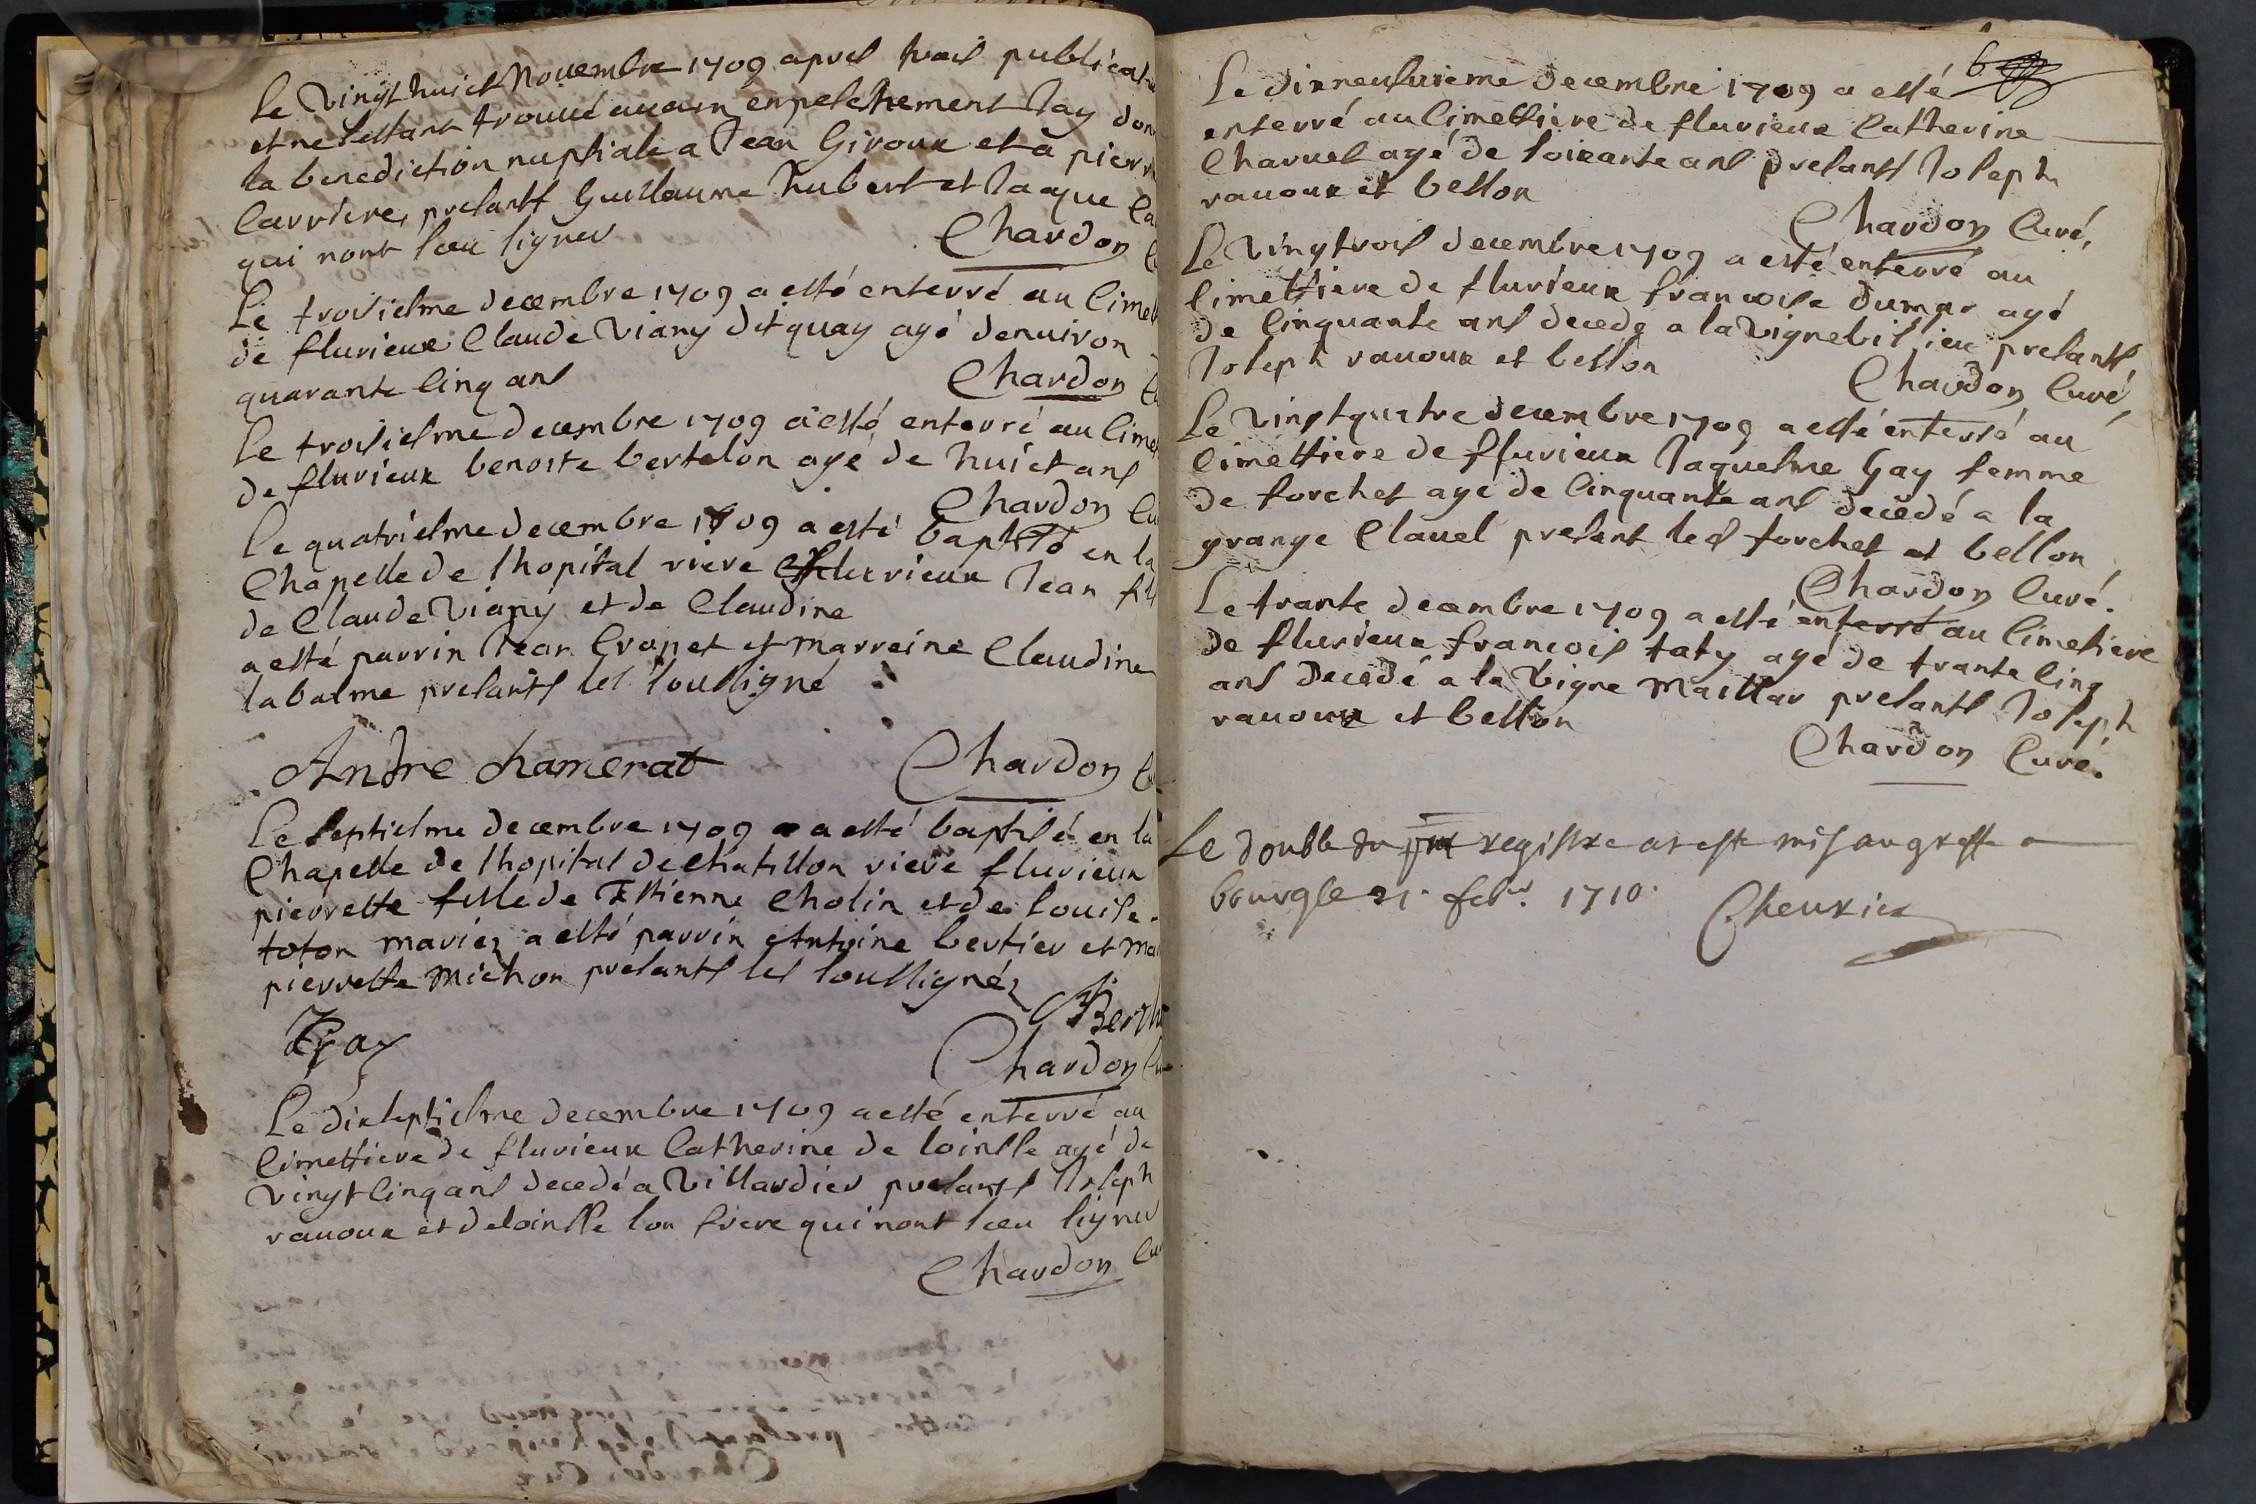 Le vingt huict Novembre 1709 apres trois publicat
et ne s'estant trouvé aucun enpeschement Jay don
la benediction nuptiale a Jean Giroux et a pierr
Carriere, presants Guillaume hubert et Jaque Ca
qui n'ont sceu signer
Chardon
Le troisiesme decembre 1709 a esté enterré au Cimet
de flurieux Claude Viany dit quay agé denuiron
quarante Cinq ans
Chardon
Le troisiesme decembre 1709 a esté enterré au Cimet
de flurieux benoste bertelon agé de huict ans
Chardon Cu
Le quatriesme decembre 1709 a esté baptisé en la
Chapelle de l'hopital riere fflurieux Jean fils
de Claude Viany et de Claudine
a esté parrin Jean Cropet et marreine Claudine
labalme presants les soussigné
Andre chamerat
Chardon Cu
Le septiesme decembre 1709 a esté baptisé en la
Chapelle de l'hopital de chatillon riere flurieux
pierrette fille de Estienne Cholin et de Louise
toton mariez a esté parrin Antoine bertier et ma
pierrette michon presants les soussignéz
Berth
Gay
Chardon Cu
Le dixseptiesme decembre 1709 a esté enterré au
Cimettiere de flurieux Catherine de Loinsse agé de
vingt Cinq ans decedé a Villardier presants Joseph
rauoux et deloinsse son frere qui n'ont sceu signer
Chardon Cu
6
Le dixneufuieme decembre 1709 a esté
enterré au Cimettiere de flurieux Catherine
Charuet agé de soixante ans presants Joseph
rauoux et besson
Chardon Curé,
Le vingtrois decembre 1709 a esté enterré au
Cimettiere de flurieux francoise dumas agé
de Cinquante ans decedé a la Vignebissieu presants
Joseph rauoux et besson
Chardon Curé
Le vingtquatre decembre 1709 a esté enterré au
Cimettiere de fflurieux Jaquesme Gay femme
de forchet agé de Cinquante ans decedé a la
grange Clauel present led forchet et besson
Chardon Curé.
Le trante decembre 1709 a esté enterré au Cimetiere
de flurieux francois taty agé de trante Cinq
ans decedé a la Vigne Maillar presants Joseph
rauoux et besson
Chardon Curé.
Le double du pnt registre at este mis au greffe a
bourg le 21. febr. 1710.
Cheurier